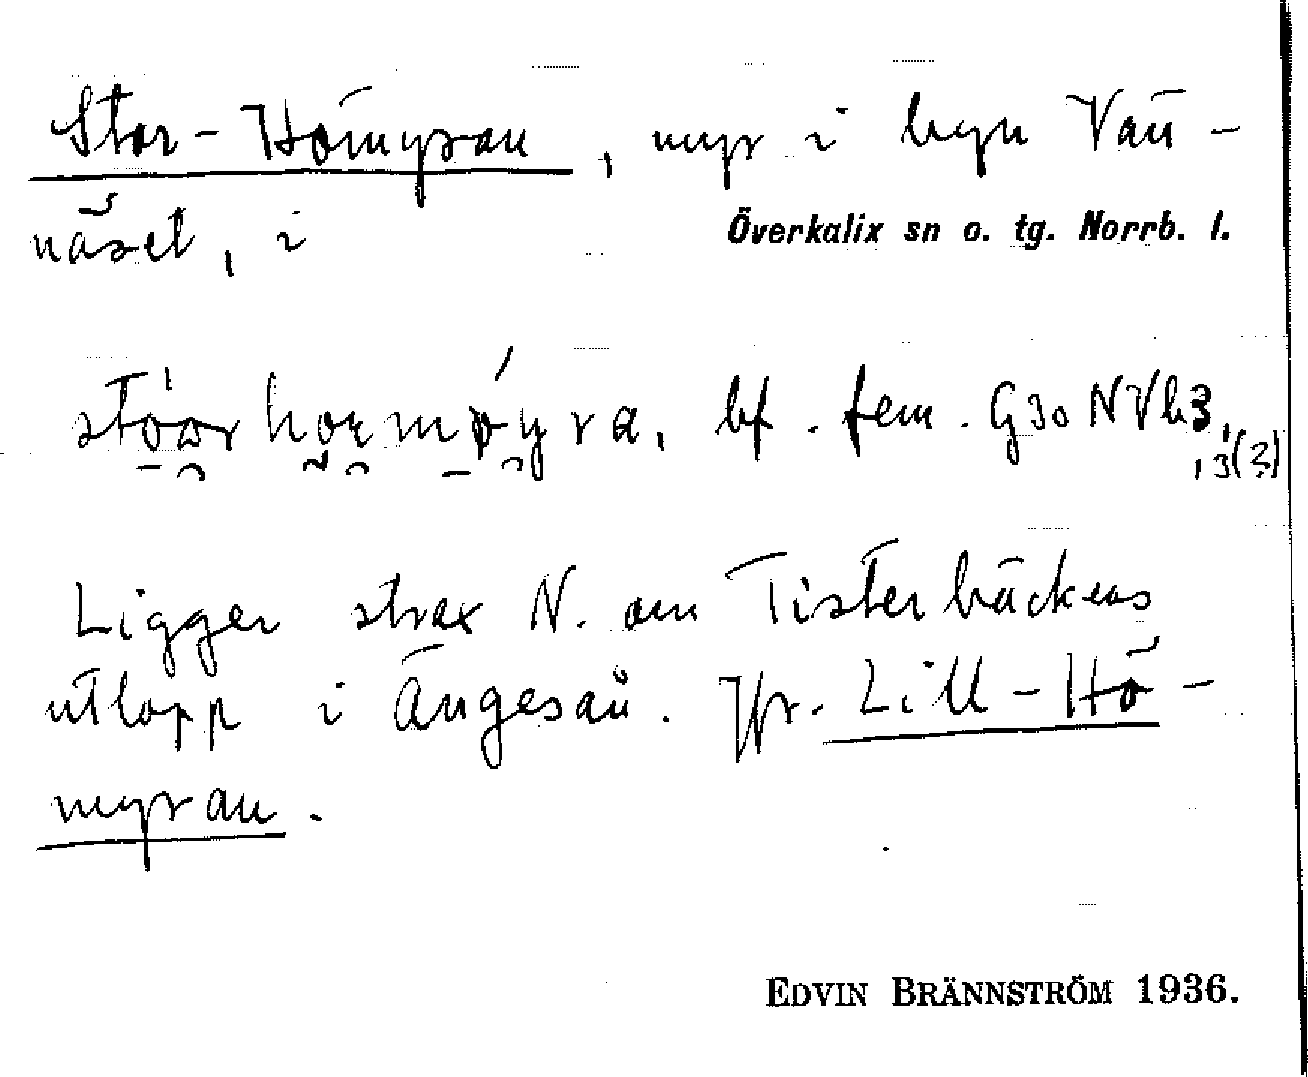 Stor-Hömyran, myr i byn Vän-
näset, i Överkalix sn o. tg. Norrb. l.
bf. fem. G 30 N V h 3,
, 3(?)
Ligger strax N. om Tisterbäckens
utlopp i Ängesån. Jfr. Lill-Hö-
myran.
EDVIN BRÄNNSTRÖM 1936.